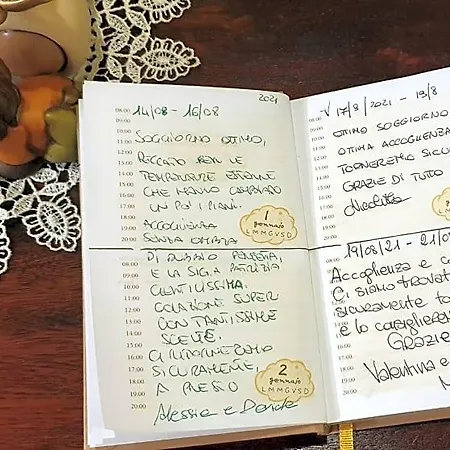 2021
14/08 - 16/08
SOGGIORNO OTTIMO,
PECCATO PER LE
TEMPERATURE ESTIVE
CHE HANNO CAMBIATO
UN PO' I PIANI.
ACCOGLIENZA
SENZA OMBRA
1
gennaio
LMMGVSD
08:00
09:00
10:00
11:00
12:00
13:00
14:00
15:00
16:00
17:00
18:00
19:00
20:00
DI DUBBIO PERFETTA,
E LA SIG.A PATRIZIA
GENTILISSIMA.
COLAZIONE SUPER
CON TANTISSIME
SCELTE.
CI RITORNEREMO
SICURAMENTE,
A PRESTO
Alessia e Davide
2
gennaio
LMMGVSD
08:00
09:00
10:00
11:00
12:00
13:00
14:00
15:00
16:00
17:00
18:00
19:00
20:00
17/8/2021 - 19/8
OTTIMO SOGGIORNO
OTTIMA ACCOGLIENZA
TORNEREMO SICU
GRAZIE DI TUTTO
19/08/21 - 21/0
Accoglienza e c
Ci siamo trovat
sicuramente to
e lo consiglierem
GRAZIE
Valentina e